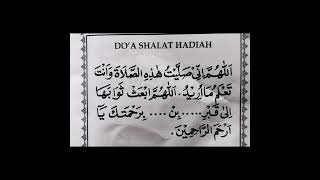 DO'A SHALAT HADIAH
اَللّٰهُمَّ اِنِّيْ صَلَّيْتُ هٰذِهِ الصَّلَاةَ وَاَنْتَ
تَعْلَمُ مَا اُرِيْدُ. اَللّٰهُمَّ ابْعَثْ ثَوَابَهَا
اِلٰى قَبْرِ..... بِنْ .... بِرَحْمَتِكَ يَا
اَرْحَمَ الرَّاحِمِيْنَ.